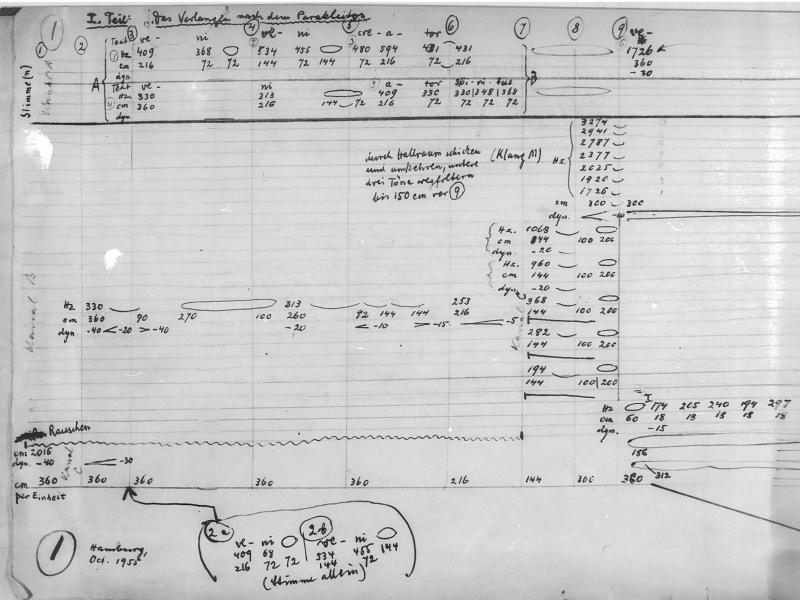 1 I. Teil: Das Verlangen nach dem Parakleiten
1 2 3 4 5 6 7 8 9
Text ve- ni ve- ni cre- a- tor ve-
Hz 409 368 534 455 480 594 431 431 1726
cm 216 72 72 144 72 144 72 216 72 72 360
dyn. -30
A B
Stimme(n)
Text ve- ni a- tor spi- ri- tus
Hz. 330 313 409 330 330 348 368
cm 360 216 144 72 216 72 72 72 72
dyn.
durch Hallraum schicken (Klang M) Hz
und umkehren, untere
drei Töne wegfiltern
bis 150 cm vor 9
3274
2941
2787
2377
2025
1920
1726
cm 300 300
dyn. -10
Hz. 1068
cm 144 100 200
dyn. -20
Hz. 960
cm 144 100 200
dyn. -20
368
144 100 200
282
144 100 200
194
144 100 200
Kanal B
Hz 330 313 253
cm 360 90 270 100 260 92 144 144 216
dyn. -40 < -20 > -40 -20 < -10 > -15 < -5
Kanal
I
Hz 174 205 240 194 297
cm 60 18 18 18 18 18
dyn. -15
186
312
Rauschen
cm 2016
dyn. -40 < -30
Kanal C
cm 360 360 360 360 360 216 144 300 360
per Einheit
1 Hamburg,
Oct. 1955
2a 2b
ve- ni ve- ni
409 68 534 455 144
216 72 72 144 72
(Stimme allein)